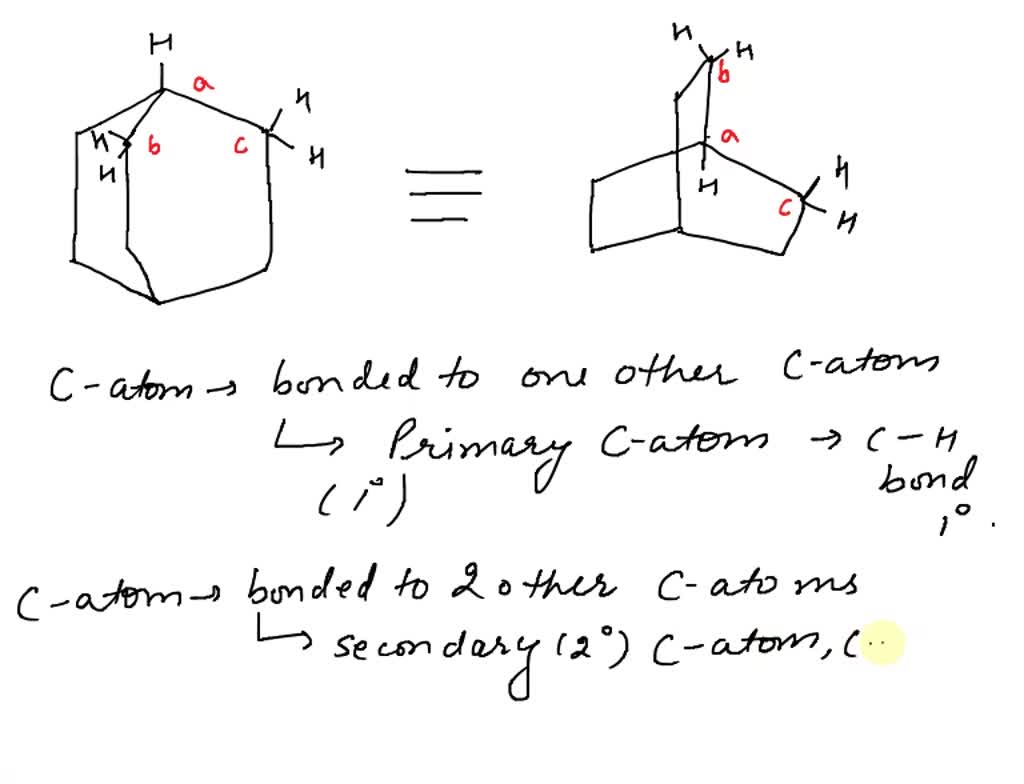 H
a
H
H
b
H
c
H
H
H
b
a
H
c
H
H
C-atom → bonded to one other C-atom
↳ Primary C-atom → C-H
(1°) bond
1°.
C-atom → bonded to 2 other C-atoms
↳ secondary (2°) C-atom, C